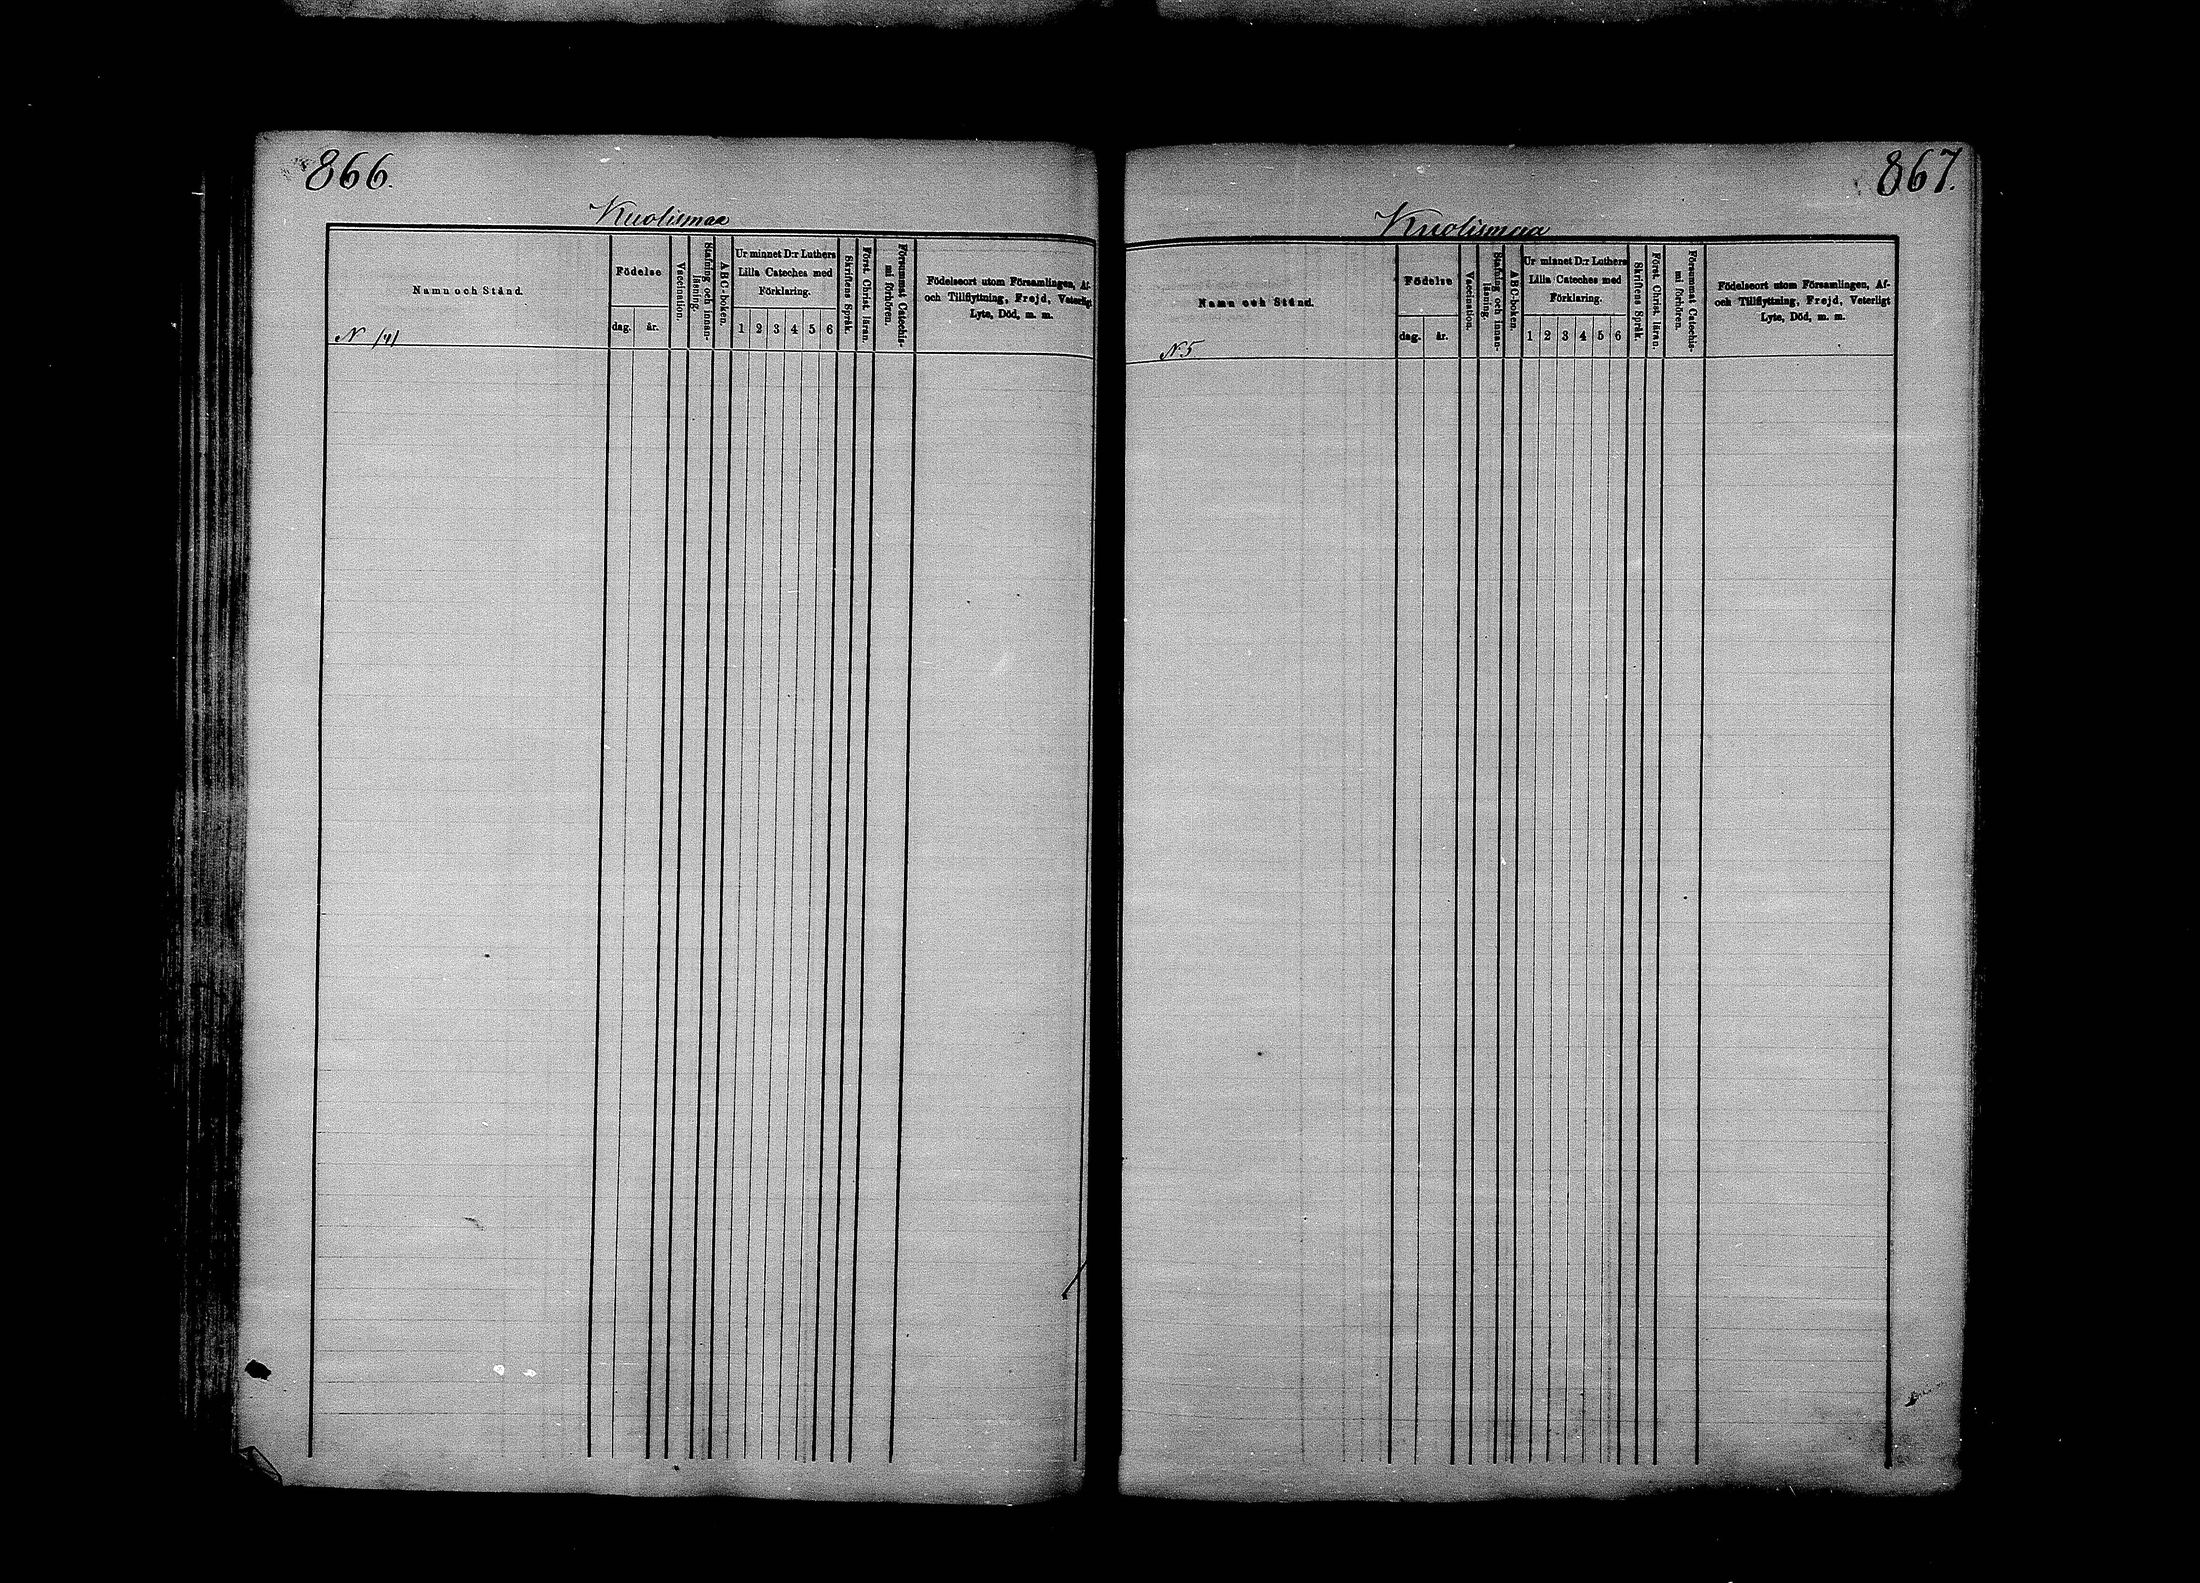 866.
Kuolismaa
Namn och Stånd.
Födelse
dag.
år.
Vaccination.
Stafning och innan-
läsning.
ABC-boken.
Ur minnet D:r Luthers
Lilla Cateches med
Förklaring.
1 2 3 4 5 6
Skriftens Språk.
Först. Christ. läran.
Försummat Catechis-
mi förhören.
Födelseort utom Församlingen, Af-
och Tillflyttning, Frejd, Veterligt
Lyte, Död, m. m.
867.
Kuolismaa
Namn och Stånd.
N. 5
Födelse
dag.
år.
Vaccination.
Stafning och innan-
läsning.
ABC-boken.
Ur minnet D:r Luthers
Lilla Cateches med
Förklaring.
1 2 3 4 5 6
Skriftens Språk.
Först. Christ. läran.
Försummat Catechis-
mi förhören.
Födelseort utom Församlingen, Af-
och Tillflyttning, Frejd, Veterligt
Lyte, Död, m. m.